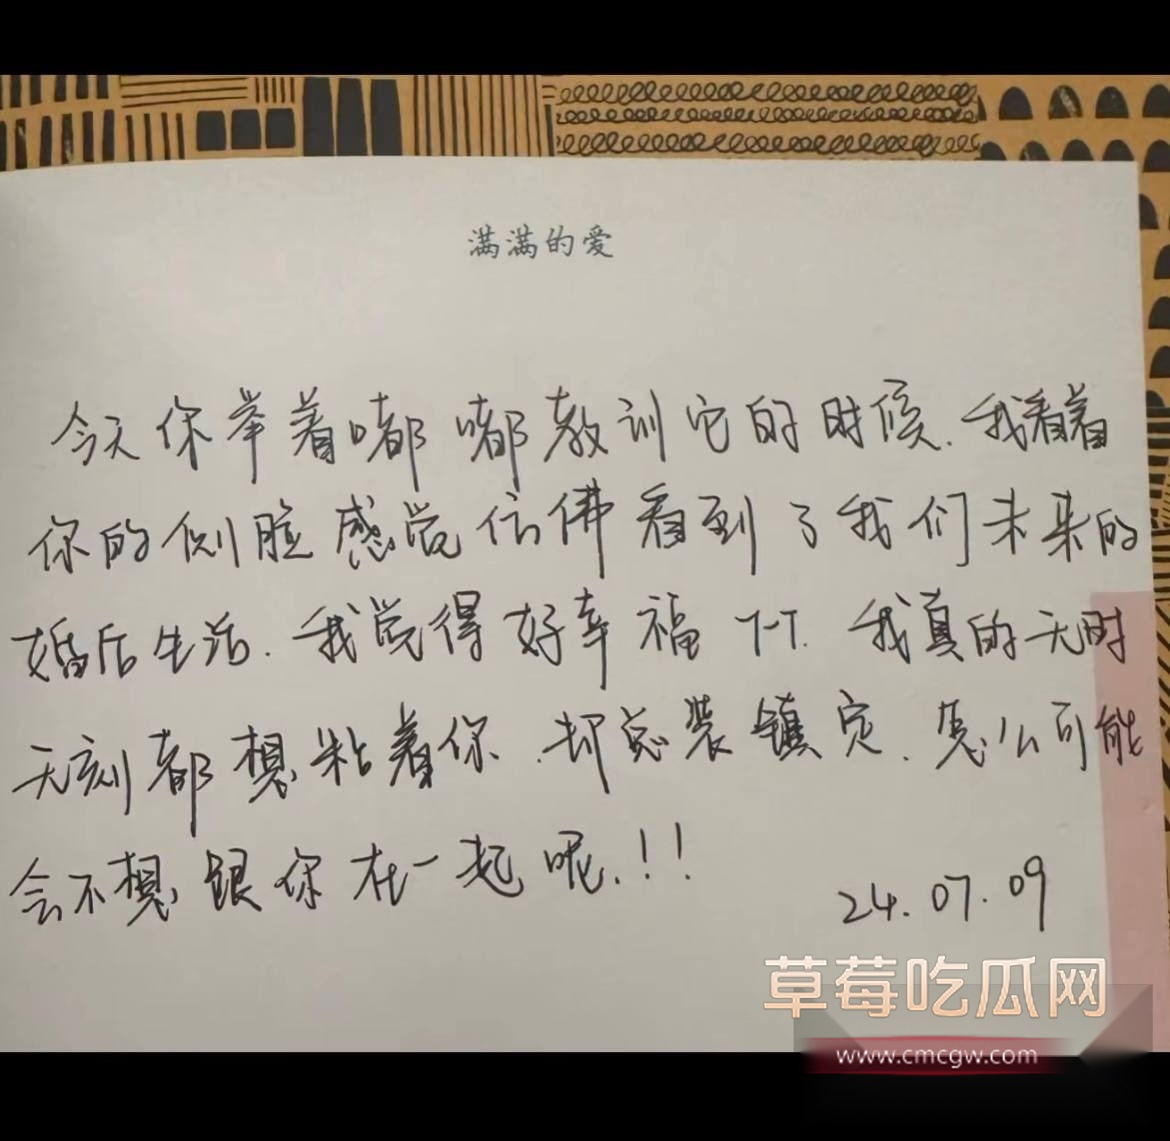 满满的爱
今天你举着嘟嘟教训它的时候.我看着
你的侧脸感觉仿佛看到了我们未来的
婚后生活.我觉得好幸福T-T.我真的无时
无刻都想粘着你.却总装镇定.怎么可能
会不想跟你在一起呢.!!
24.07.09
草莓吃瓜网
www.cmcgw.com